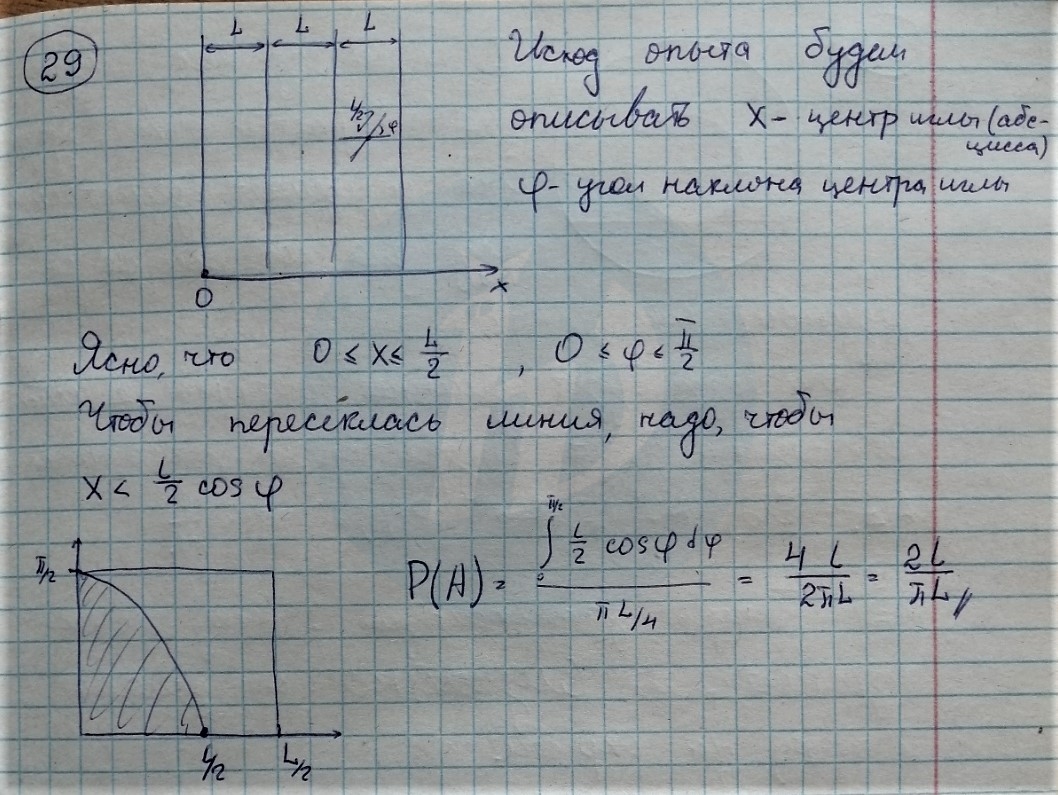 29
L L L
Исход опыта будем
L/2 φ
описывать X - центр иглы (абс-
цисса)
φ - угол наклона центра иглы
O x
Ясно, что 0 ≤ x ≤ L/2 , 0 ≤ φ ≤ π/2
Чтобы пересеклась линия, надо, чтобы
x < L/2 cos φ
π/2
P(A) = ∫₀^{π/2} L/2 cos φ dφ / (πL/4) = 4L/2πL = 2L/πL
L/2 L/2